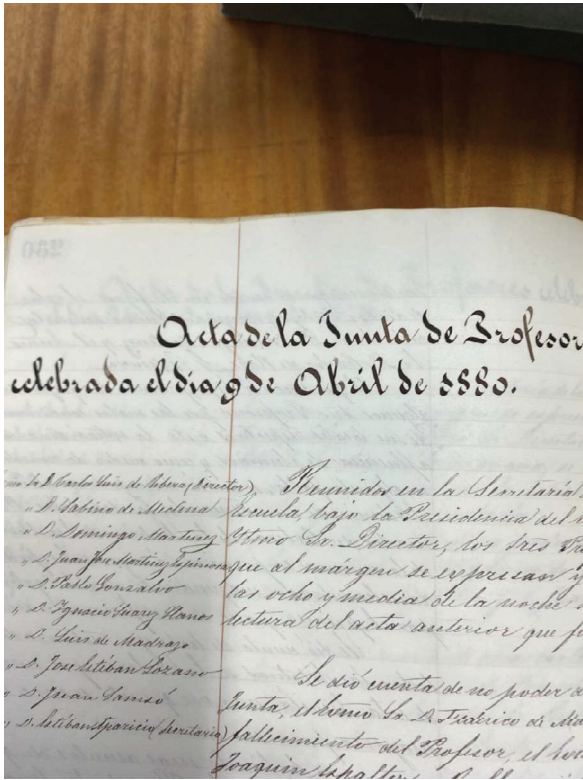 Acta de la Junta de Profesor
celebrada el día 9 de Abril de 1880.
Sr. D. Carlos Luis de Ribera (Director)
" D. Sabino de Medina
" D. Domingo Martinez
" D. Juan José Martinez Espinosa
" D. Pablo Gonzalvo
" D. Ignacio Suarez Llanos
" D. Luis de Madrazo
" D. José Esteban Lozano
" D. Juan Samsó
" D. Esteban Aparicio (Secretario)
Reunidos en la Secretaría
Escuela, bajo la Presidencia del
Ilmo Sr. Director, los Sres
que al margen se expresan y
las ocho y media de la noche
lectura del acta anterior que
Se dió cuenta de no poder
Junta, el Sr. D. Federico de
fallecimiento del Profesor, el
Joaquin Espalter